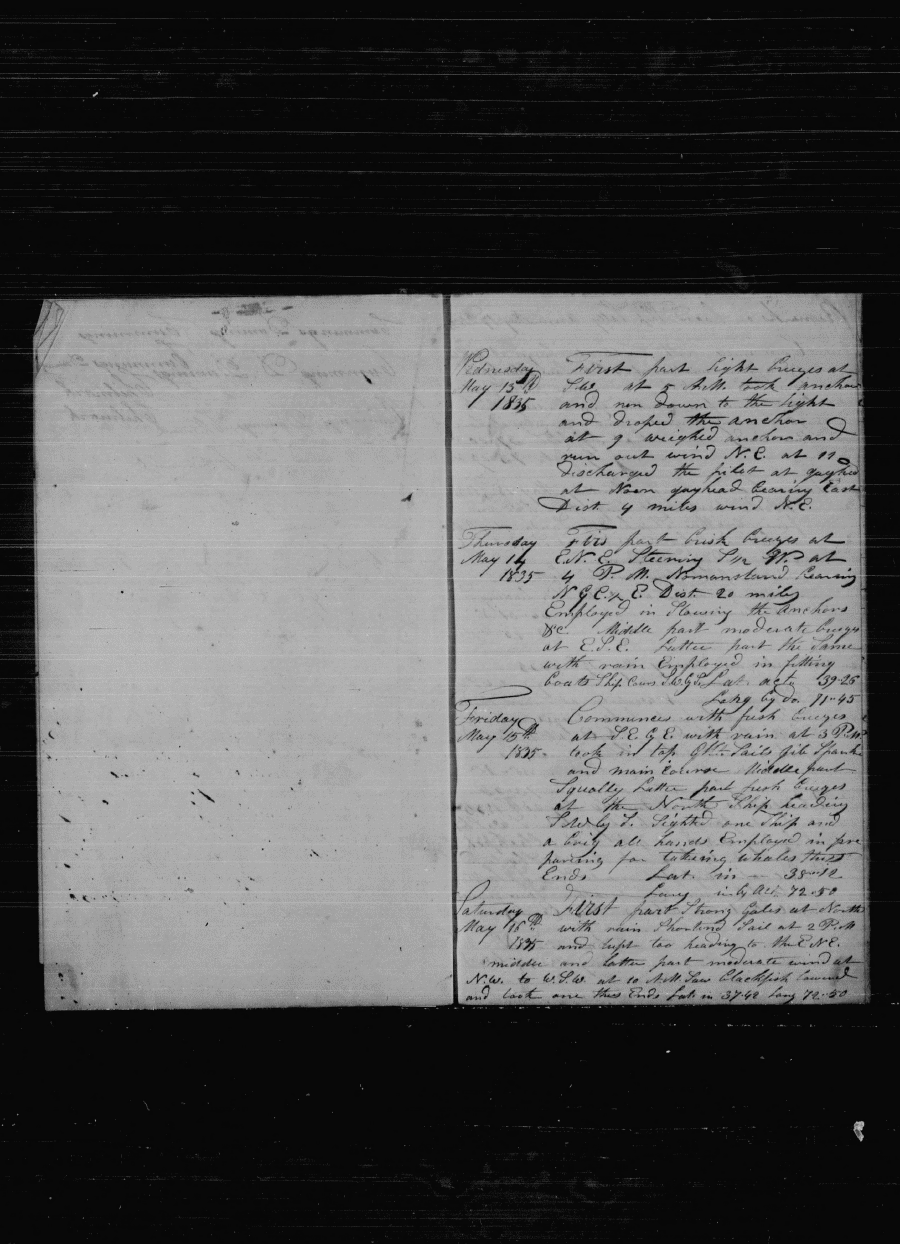 Wednesday First part light breezes at
May 13th S.W. at 5 A.M. took anchor
1835 and run down to the light
and droped the anchor
at 9 weighed anchor and
run out wind N.E. at 11
discharged the pilot at gayhead
at Noon gayhead bearing East
Dist 4 miles wind N.E.
Thursday Firs part brisk breezes at
May 14 E.N.E. Steering S W at
1835 4 P.M. Nomansland bearing
N E Dist 20 miles
Employed in Stowing the anchors
&c. Middle part moderate breezes
at E.S.E. Latter part the Same
with rain Employed in fitting
boats Ship Cours Lat 39-25
Long by do 71-45
Friday Commences with fresh breezes
May 15th at S.E. E with rain at 3 P.M
1835 took in top Sails jib Spanker
and main Course Middle part
Squally Latter part fresh breezes
at the North Ship heading
by S. Sighted one Ship and
a brig all hands Employed in pre
paring for takeing whales thus
Ends Lat in 38-12
Long in by 72-50
Saturday First part Strong Gales at North
May 16th with rain Shortend Sail at 2 P.M
1835 and kept too heading to the E.N.E.
middle and latter part moderate wind at
N.W. to W.S.W. at 10 A.M. Saw blackfish lowered
and took one thus Ends Lat in 37-42 Long 72-50